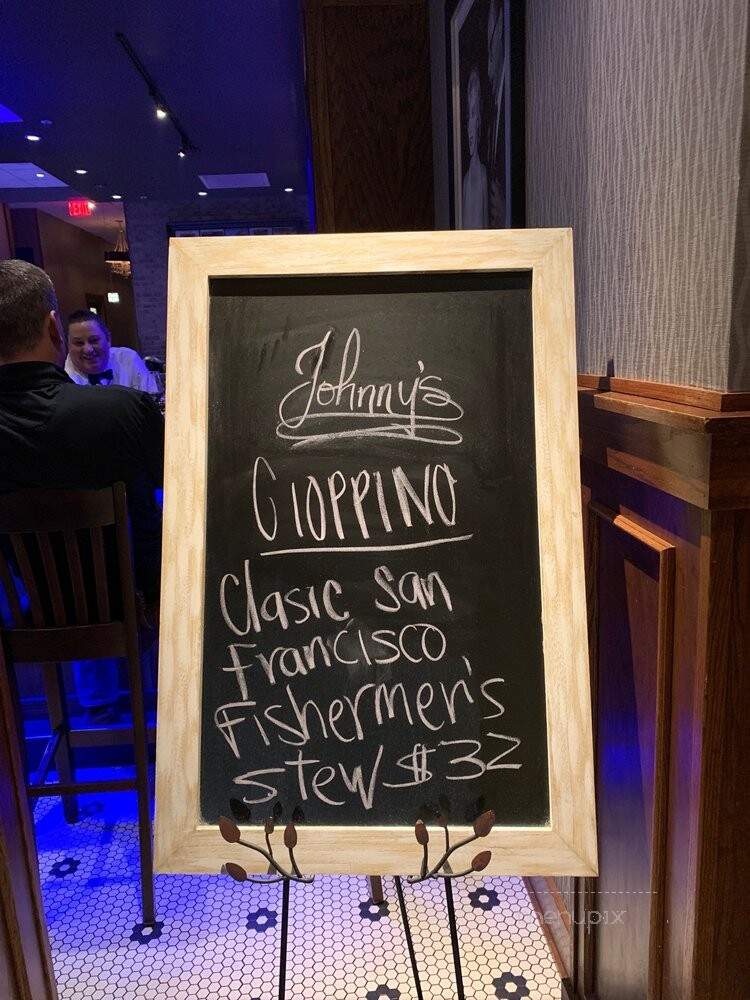 EXIT
Johnny's
CIOPPINO
Clasic San
Francisco
Fishermen's
stew $32
menupix